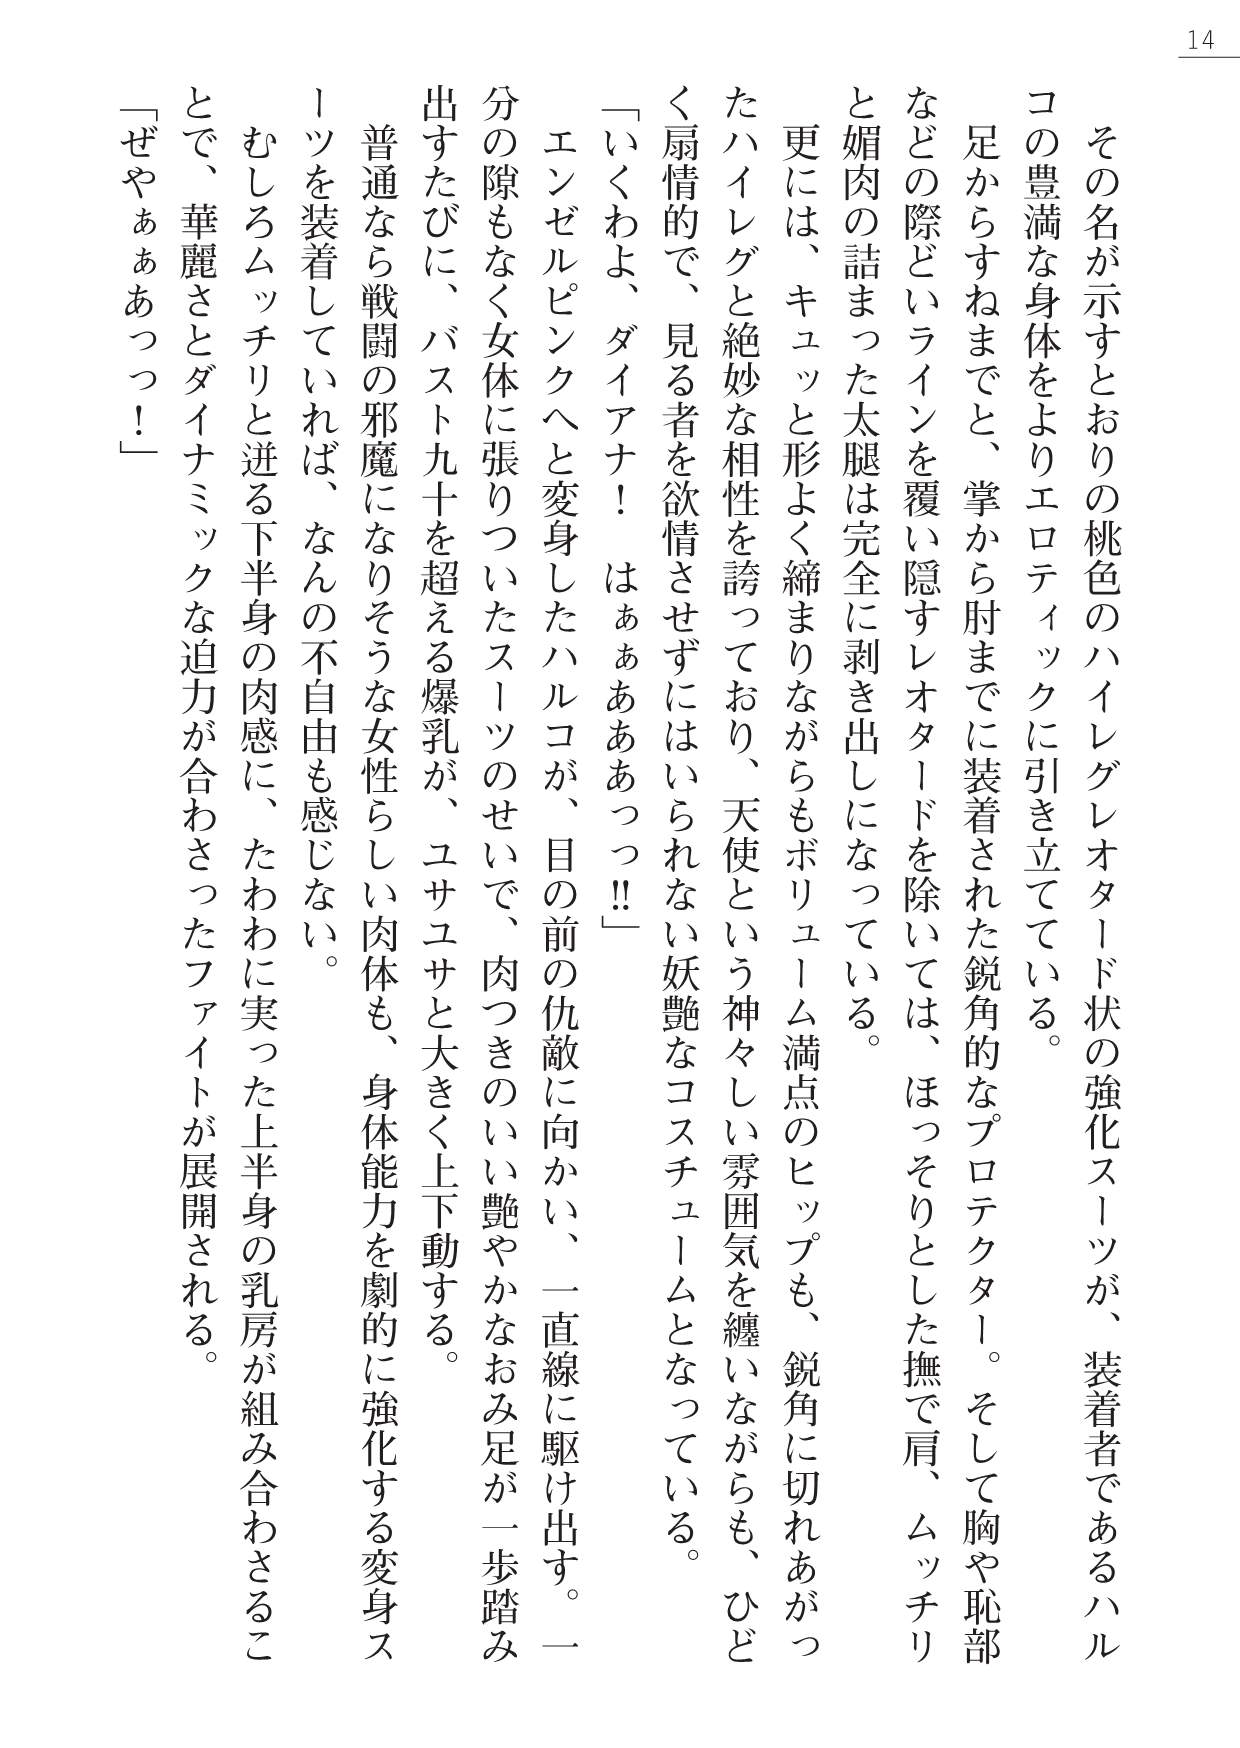 14
　その名が示すとおりの桃色のハイレグレオタード状の強化スーツが、装着者であるハル
コの豊満な身体をよりエロティックに引き立てている。
　足からすねまでと、掌から肘までに装着された鋭角的なプロテクター。そして胸や恥部
などの際どいラインを覆い隠すレオタードを除いては、ほっそりとした撫で肩、ムッチリ
と媚肉の詰まった太腿は完全に剥き出しになっている。
　更には、キュッと形よく締まりながらもボリューム満点のヒップも、鋭角に切れあがっ
たハイレグと絶妙な相性を誇っており、天使という神々しい雰囲気を纏いながらも、ひど
く扇情的で、見る者を欲情させずにはいられない妖艶なコスチュームとなっている。
「いくわよ、ダイアナ！　はぁぁあああっっ‼」
　エンゼルピンクへと変身したハルコが、目の前の仇敵に向かい、一直線に駆け出す。一
分の隙もなく女体に張りついたスーツのせいで、肉つきのいい艶やかなおみ足が一歩踏み
出すたびに、バスト九十を超える爆乳が、ユサユサと大きく上下動する。
　普通なら戦闘の邪魔になりそうな女性らしい肉体も、身体能力を劇的に強化する変身ス
ーツを装着していれば、なんの不自由も感じない。
　むしろムッチリと迸る下半身の肉感に、たわわに実った上半身の乳房が組み合わさるこ
とで、華麗さとダイナミックな迫力が合わさったファイトが展開される。
「ぜやぁぁあっっ！」